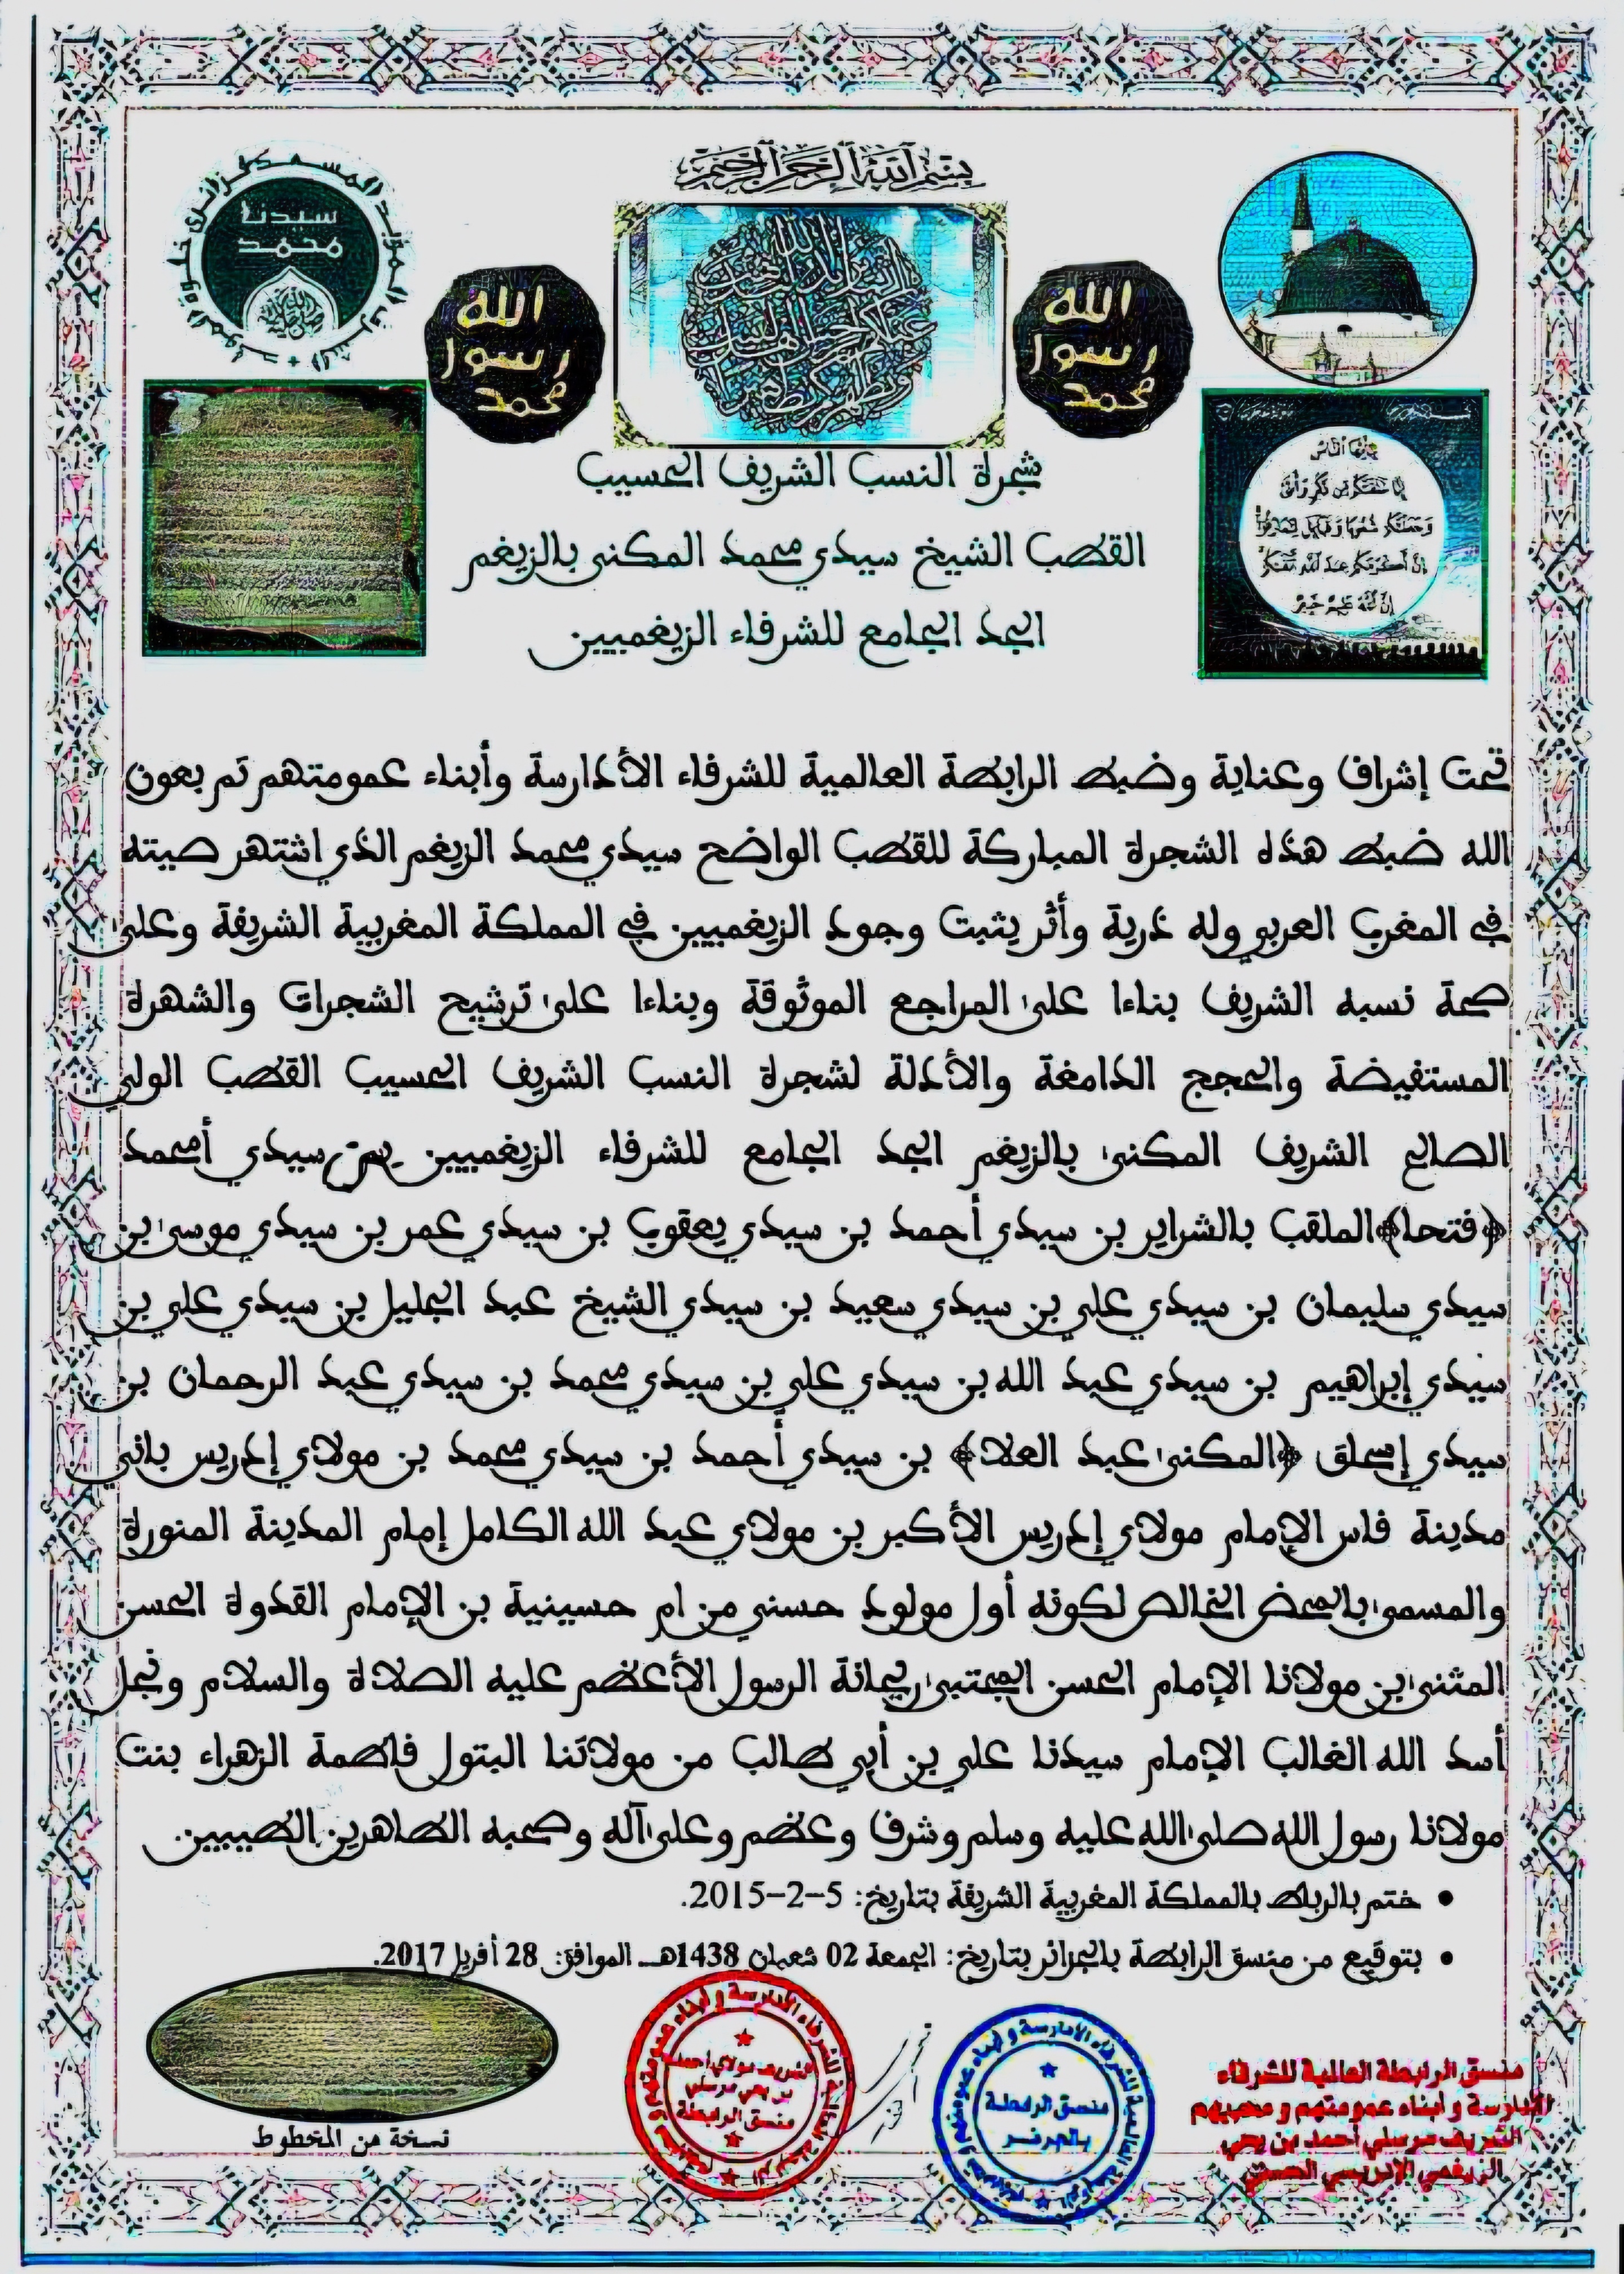 بسم الله الرحمن الرحيم
سيدنا
محمد
الله
رسول
محمد
الله
رسول
محمد
يا أيها الناس
إنا خلقناكم من ذكر وأنثى
وجعلناكم شعوبا وقبائل لتعارفوا
إن أكرمكم عند الله أتقاكم
إن الله عليم خبير
شجرة النسب الشريف الحسيب
القطب الشيخ سيدي محمد المكنى بالزيغم
الجد الجامع للشرفاء الزيغميين
تحت إشراف وعناية وضبط الرابطة العالمية للشرفاء الأدارسة وأبناء عمومتهم تم بعون
الله ضبط هذه الشجرة المباركة للقطب الواضح سيدي محمد الزيغم الذي اشتهر صيته
في المغرب العربي وله ذرية وأثر يثبت وجود الزيغميين في المملكة المغربية الشريفة وعلى
صحة نسبه الشريف بناءا على المراجع الموثوقة وبناءا على ترشيح الشجرات والشهرة
المستفيضة والحجج الدامغة والأدلة لشجرة النسب الشريف الحسيب القطب الولي
الصالح الشريف المكنى بالزيغم الجد الجامع للشرفاء الزيغميين بن سيدي أمحمد
﴿فتحا﴾الملقب بالشراير بن سيدي أحمد بن سيدي يعقوب بن سيدي عمر بن سيدي موسى بن
سيدي سليمان بن سيدي علي بن سيدي سعيد بن سيدي الشيخ عبد الجليل بن سيدي علي بن
سيدي إبراهيم بن سيدي عبد الله بن سيدي علي بن سيدي محمد بن سيدي عبد الرحمان بن
سيدي إسحاق ﴿المكنى عبد العلا﴾ بن سيدي أحمد بن سيدي محمد بن مولاي إدريس باني
مدينة فاس الإمام مولاي إدريس الأكبر بن مولاي عبد الله الكامل إمام المدينة المنورة
والمسمى بالمحض الخالص لكونه أول مولود حسني من ام حسينية بن الإمام القدوة الحسن
المثنى بن مولانا الإمام الحسن المجتبى ريحانة الرسول الأعظم عليه الصلاة والسلام ونجل
أسد الله الغالب الإمام سيدنا علي بن أبي طالب من مولاتنا البتول فاطمة الزهراء بنت
مولانا رسول الله صلى الله عليه وسلم وشرف وعظم وعلى آله وصحبه الطاهرين الطيبين.
• ختم بالرباط بالمملكة المغربية الشريفة بتاريخ: 5-2-2015.
• بتوقيع من منسق الرابطة بالجزائر بتاريخ: الجمعة 02 شعبان 1438هـ الموافق: 28 أفريل 2017.
نسخة من المخطوط
منسق الرابطة
منسق الرابطة
بالجزائر
منسق الرابطة العالمية للشرفاء
الأدارسة و أبناء عمومتهم و محبيهم
الشريف مرسلي أحمد بن يحي
الزيغمي الإدريسي الحسني